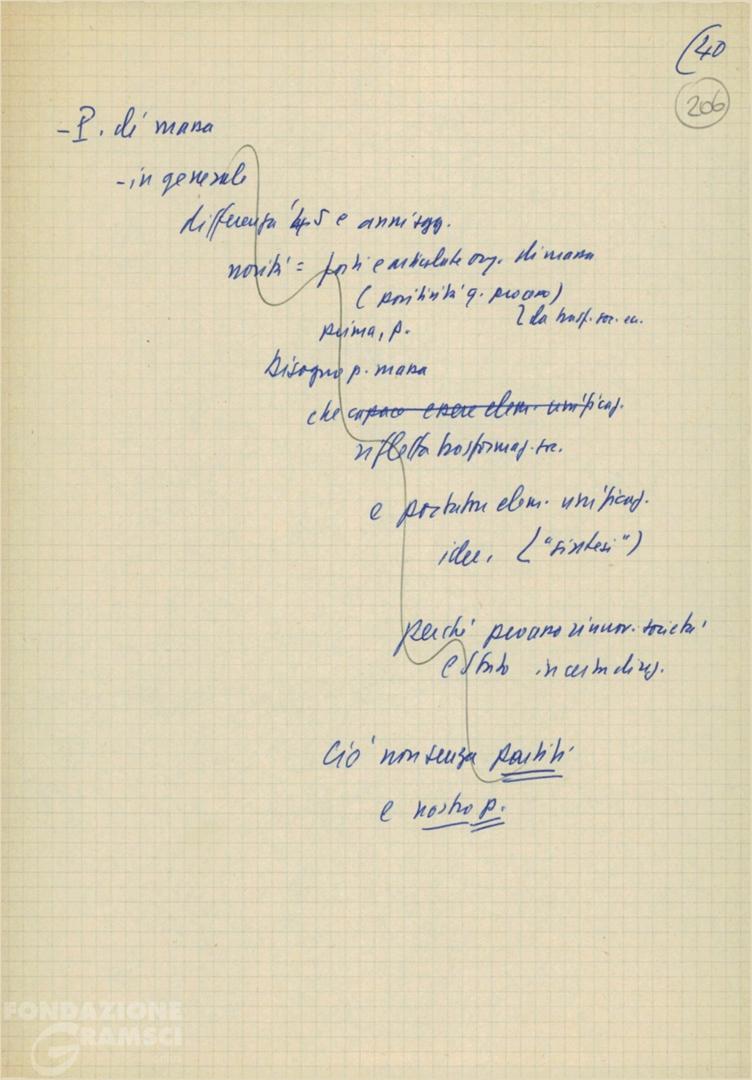 (40
206
- P. di massa
- in generale
differenza '45 e anni sgg.
novità = forti e articolate org. di massa
(positività q. processo)
da trasf. soc. ec.
prima, p.
Bisogno p. massa
che capace essere elem. unificaz.
rifletta trasformaz. soc.
e portatore elem. unificaz.
idee, ("sintesi")
perché processo rinnov. società
e Stato in certa direz.
Ciò non senza partiti
e nostro p.
FONDAZIONE
GRAMSCI